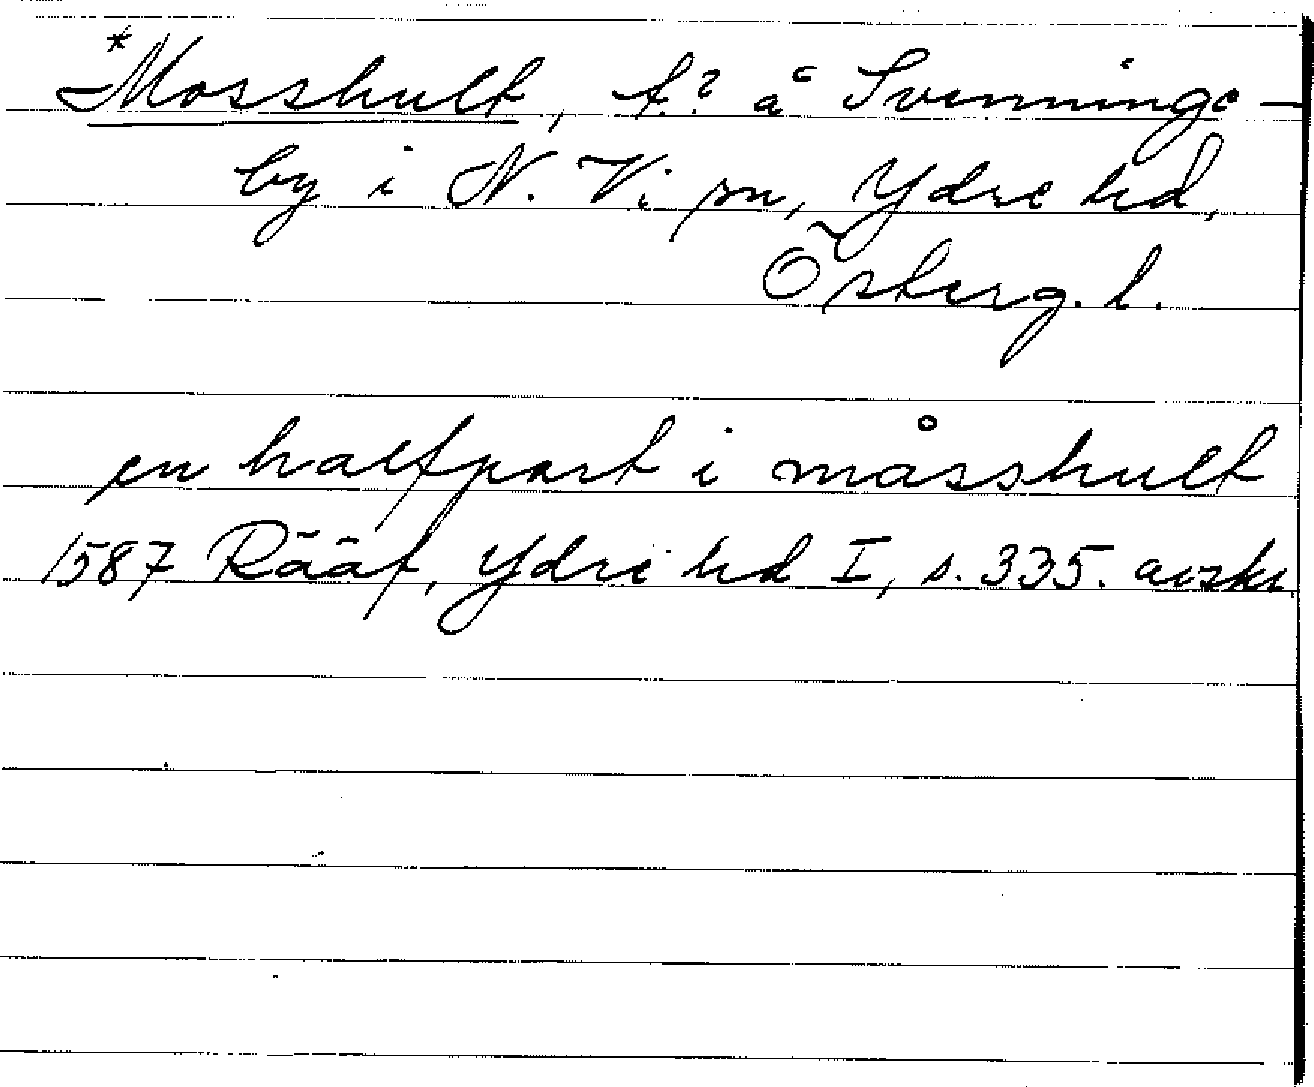 *Mosshult, t.? å Svennings-
by i N. Vi sn, Ydre hd,
Österg. l.
en halfpart i måsshult
1587 Rääf, Ydre hd I, s. 335. avskr.